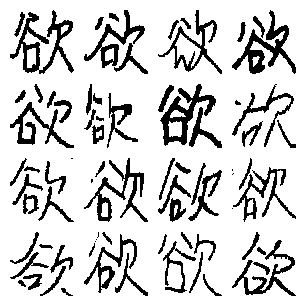 欲欲欲欲
欲欲欲欲
欲欲欲欲
欲欲欲欲